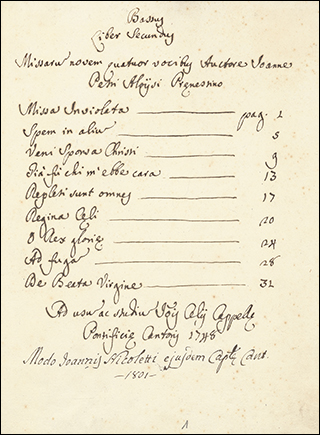 Bassus
Liber Secundus
Missarũ novem quatuor vocibus Auctore Joanne
Petri Aloÿsi Pręnestino
Missa Inviolata pag. 1
Spem in aliũ 5
Veni Sponsa Christi 9
Già fù chi m'ebbe cara 13
Repleti sunt omnes 17
Regina Cęli 20
O Rex glorię 24
Ad fuga 28
De Beata Virgine 32
Ad usũ ac studiũ Cappellę
Pontificię Cantoris 1748
Modo Joannis Nicoletti ejusdem Capłę Cant.
-1801-
1